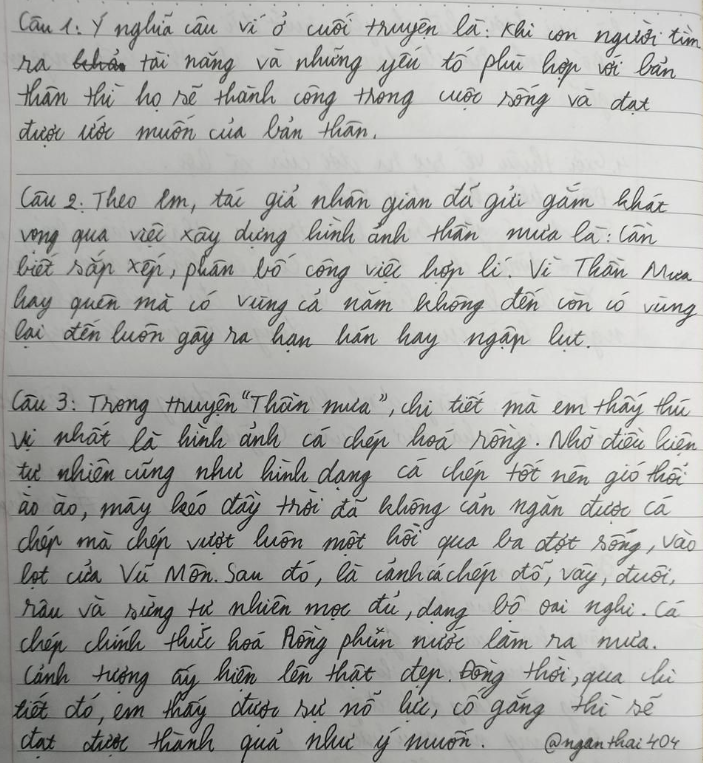 Câu 1: Ý nghĩa câu ví ở cuối truyện là: Khi con người tìm
ra tài năng và những yếu tố phù hợp với bản
thân thì họ sẽ thành công trong cuộc sống và đạt
được ước muốn của bản thân.
Câu 2: Theo em, tác giả nhân gian đã gửi gắm khát
vọng qua việc xây dựng hình ảnh thần mưa là: Cần
biết sắp xếp, phân bố công việc hợp lí. Vì Thần Mưa
hay quên mà có vùng cả năm không đến còn có vùng
lại đến luôn gây ra hạn hán hay ngập lụt.
Câu 3: Trong truyện "Thần mưa", chi tiết mà em thấy thú
vị nhất là hình ảnh cá chép hoá rồng. Nhờ điều kiện
tự nhiên cũng như hình dạng cá chép tốt nên gió thổi
ào ào, mây kéo đầy trời đã không cản ngăn được cá
chép mà chép vượt luôn một hồi qua ba đợt sóng, vào
lọt cửa Vũ Môn. Sau đó, là cảnh cá chép đổ, vây, đuôi,
râu và sừng tự nhiên mọc đủ, dạng bộ oai nghi. Cá
chép chính thức hoá Rồng phun nước làm ra mưa.
Cảnh tượng ấy hiện lên thật đẹp. Đồng thời, qua chi
tiết đó, em thấy được sự nỗ lực, cố gắng thì sẽ
đạt được thành quả như ý muốn. @nganthai404